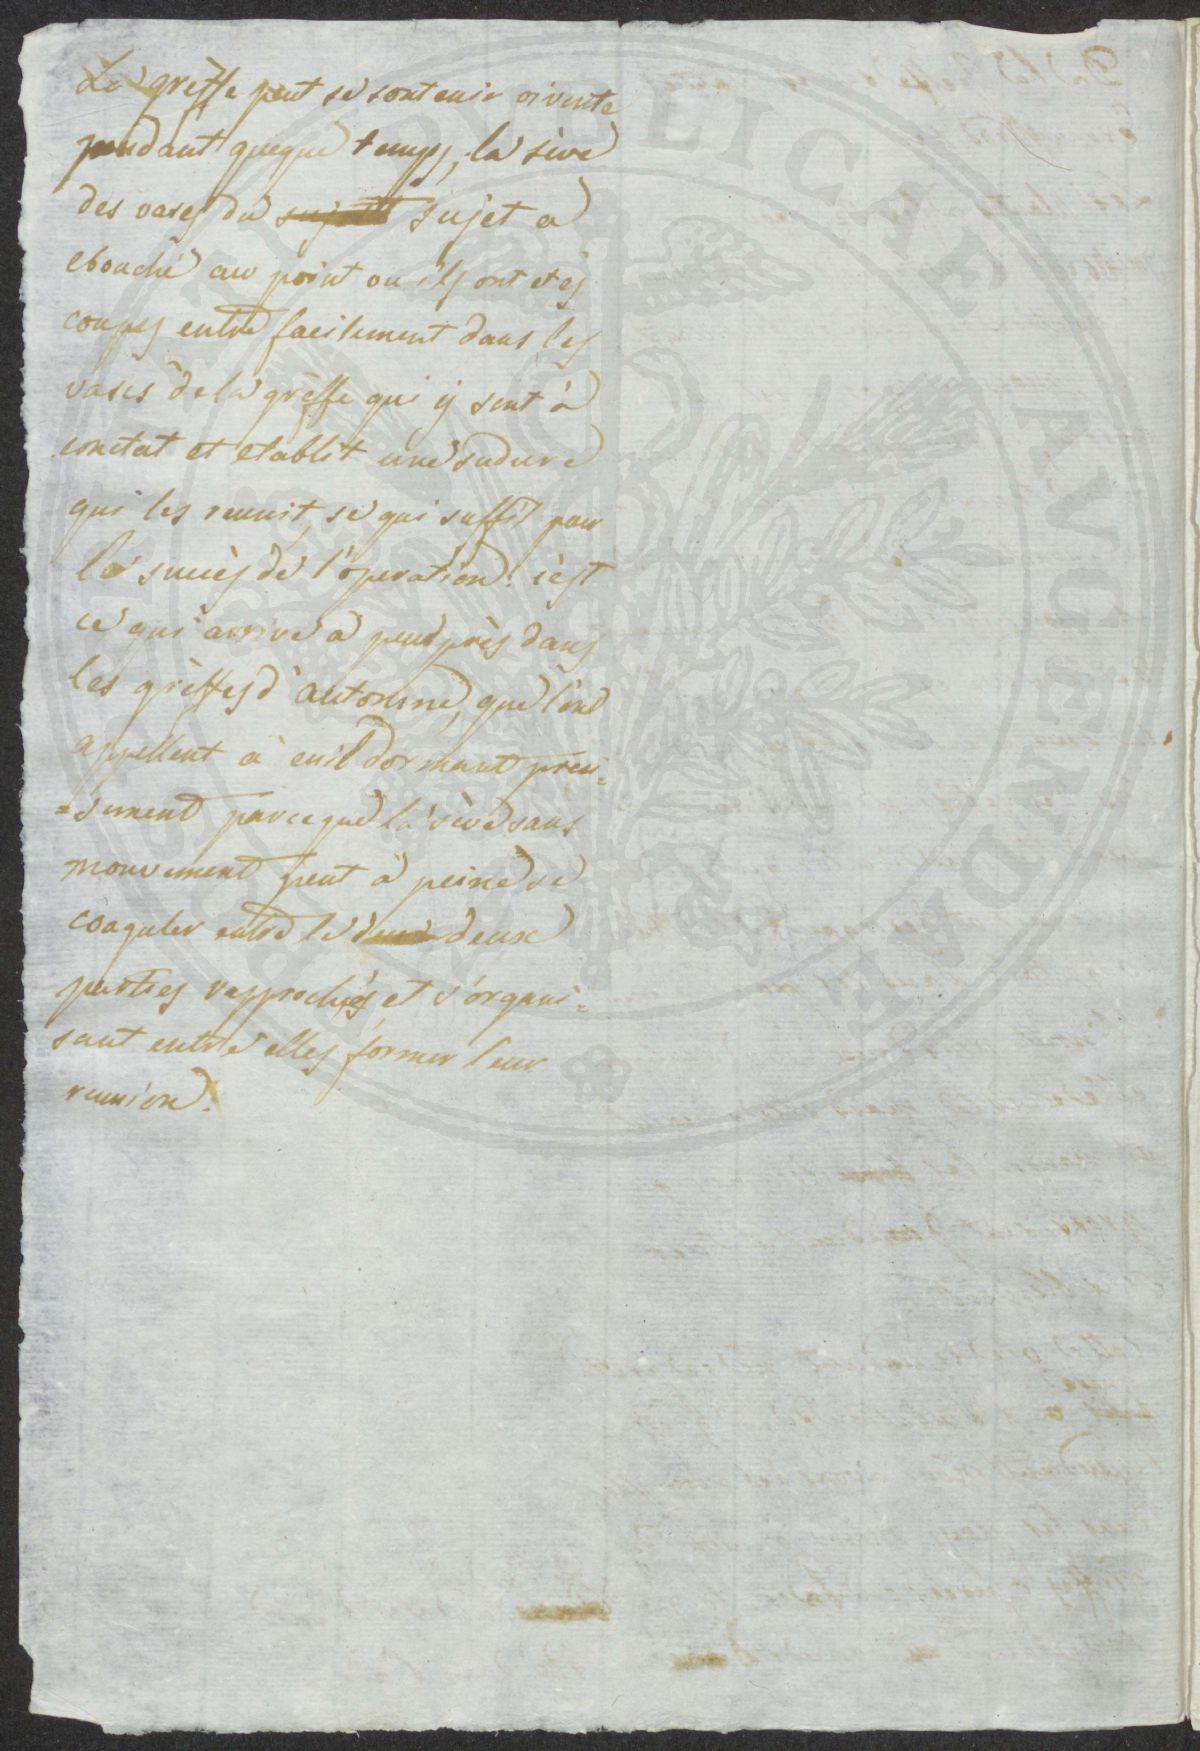 La grèffe peut se soutenir vivente
pendant queque temps, la sève
des vases du sujet sujet a
ebouché au point ou ils ont etés
coupés entre facilement dans les
vases de la grèffe qui y sont à
contat et etablit une sudure
qui les reunit, se qui suffit pour
le succès de l'operation. c'est
ce qui arrive a peu près dans
les grèffes d'automne, que l'ont
appellent à euil dormant preci-
=sement parceque la sève sans
mouvement peut à peine se
coaguler entre le deux deux
parties rapprochés et s'organi=
sant entre elles former leur
reunion.
RES PUBLICAE AUGENDAE